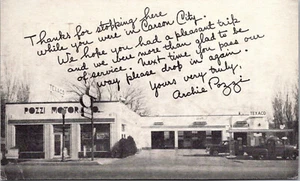 Thanks for stopping here
while you were in Carson City.
We hope you had a pleasant trip
and we were more than glad to be
of service. Next time you pass our
way please drop in again.
Yours very truly,
Archie Pozzi
POZZI MOTORS
TEXACO